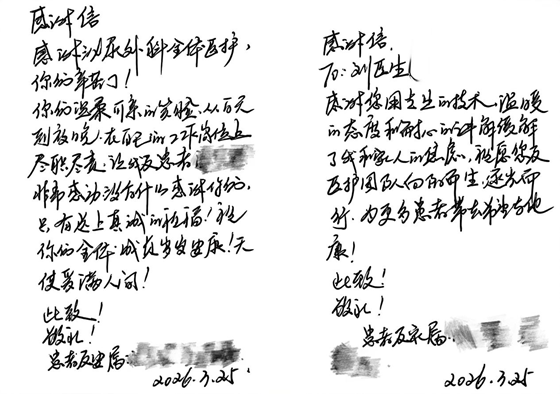 感谢信
感谢泌尿外科全体医护，
你们辛苦了！
你们温柔可亲的笑脸，从白天
到夜晚，在自己的工作岗位上
尽职尽责，让我及患者
非常感动没有什么感谢你们的，
只有送上真诚的祝福！祝
你们全体成员岁岁安康！天
使爱满人间！
此致！
敬礼！
患者及家属：
2026.3.25
感谢信
To：刘医生
感谢您用专业的技术，温暖
的态度和耐心的讲解缓解
了我和家人的焦虑，祝愿您及
医护团队向阳而生，逐光而
行，为更多患者带去希望与健
康！
此致！
敬礼！
患者及家属：
2026.3.25